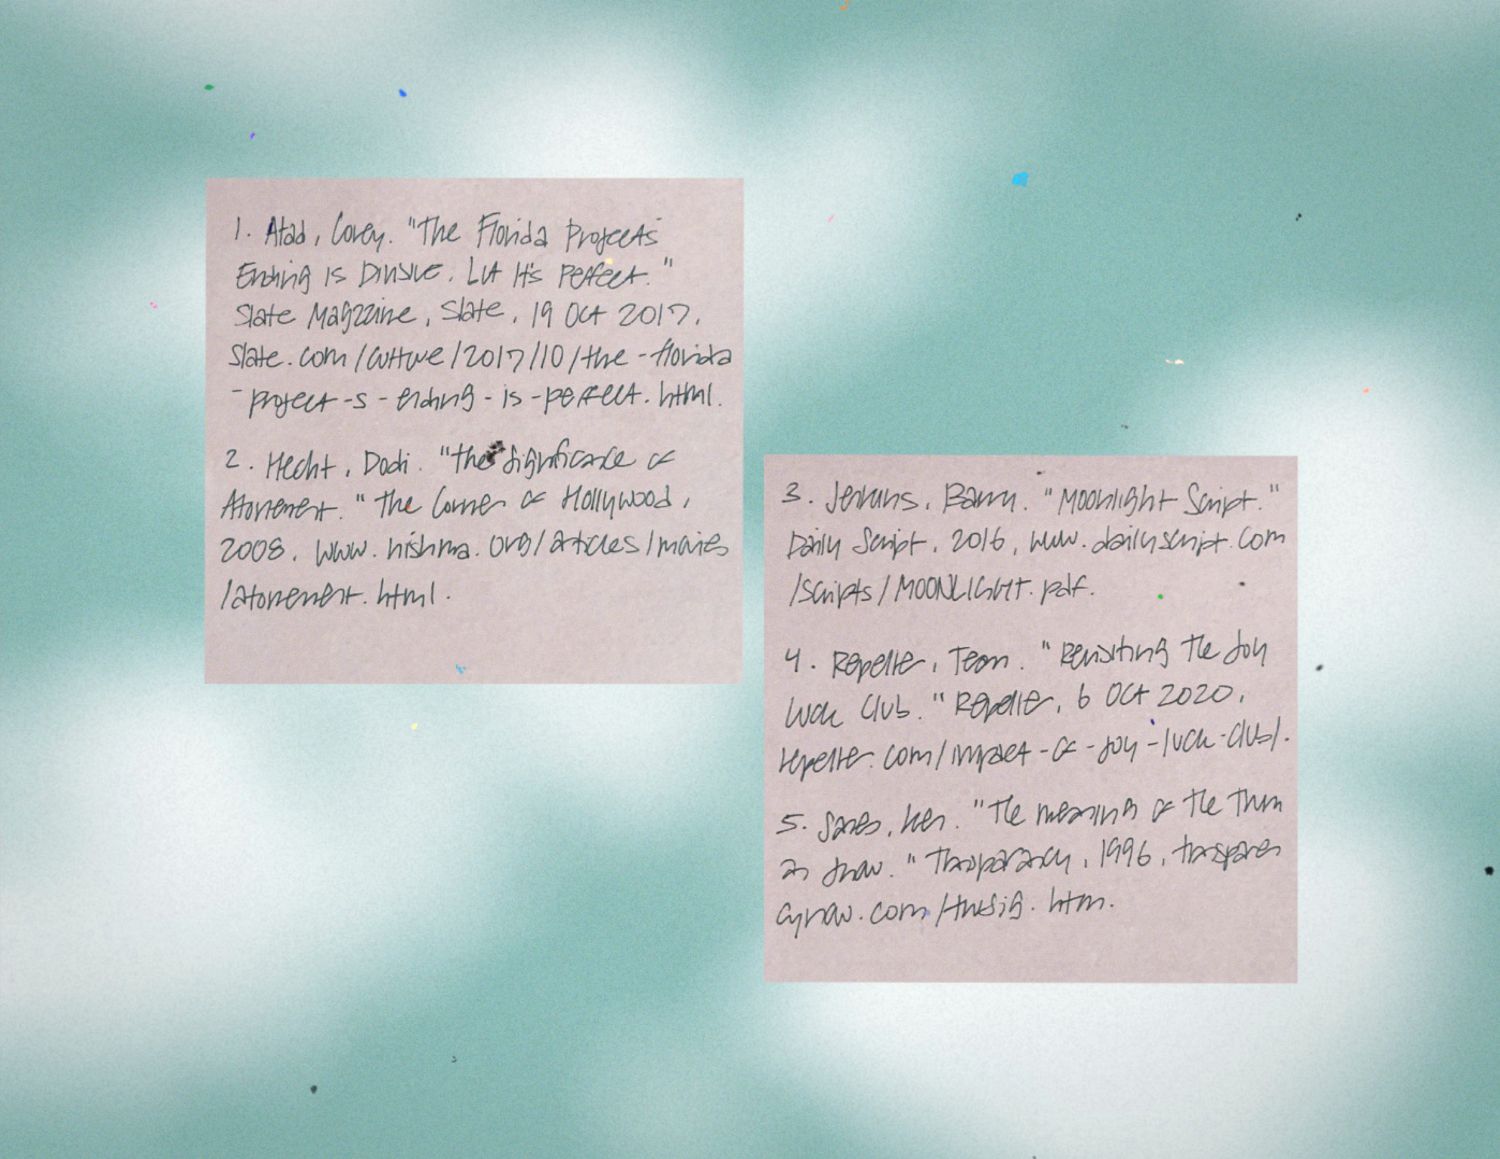 1. Atad, Corey. "The Florida Project's
Ending is Divisive. But It's Perfect."
Slate Magazine, Slate, 19 Oct 2017,
slate.com/culture/2017/10/the-florida
-project-s-ending-is-perfect.html.
2. Hecht, Dodi. "The Significance of
Atonement." The Corner of Hollywood,
2008. www.nishma.org/articles/movies
/atonement.html.
3. Jenkins, Barry. "Moonlight Script."
Daily Script, 2016, www.dailyscript.com
/scripts/MOONLIGHT.pdf.
4. Repeller, Team. "Revisiting The Joy
Luck Club." Repeller, 6 Oct 2020,
repeller.com/impact-of-joy-luck-club/.
5. Sanes, Ken. "The meaning of The Truman
Show." Transparency, 1996, transparen
cynow.com/trusig.htm.